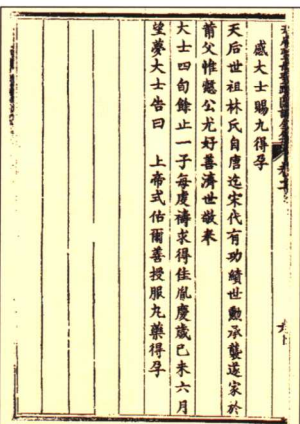 感大士賜丸得孕
天后世祖林氏自唐迄宋代有功績世勳承襲遂家於
莆父惟慤公尤好善濟世敬奉
大士四旬餘止一子每虔禱求得佳胤慶歲己未六月
望夢大士告曰 上帝式佑爾善授服丸藥得孕